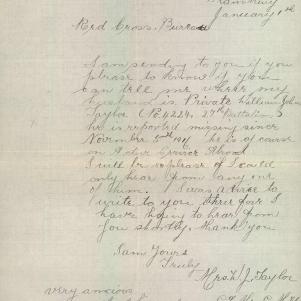 January 1st
Red Cross Bureau
I am sending to you if you
please to know if you
can tell me where my
husband is Private William John
Taylor (No 4224, 27th Battalion)
he is reported missing since
November 5th 1916 he is of course
I will be pleased if I could
only hear from any one
of him. I was advised to
write to you therefore I
have hoping to hear from
you shortly. thank you
I am Yours
Truly
Mrs W J Taylor
very anxious